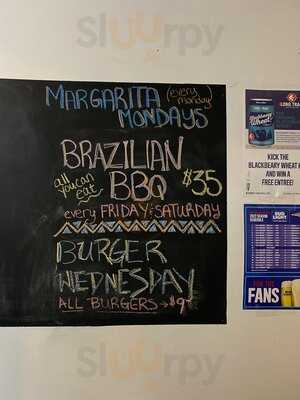 Sluurpy
MARGARITA (every monday)
MONDAYS
BRAZILIAN
all you can eat BBQ $35
every FRIDAY & SATURDAY
BURGER
WEDNESDAY
ALL BURGERS → $9
LONG TRAIL
Blackbeary
Wheat
KICK THE
BLACKBEARY WHEAT K
AND WIN A
FREE ENTREE!
BUD LIGHT
FOR THE
FANS
Sluurpy